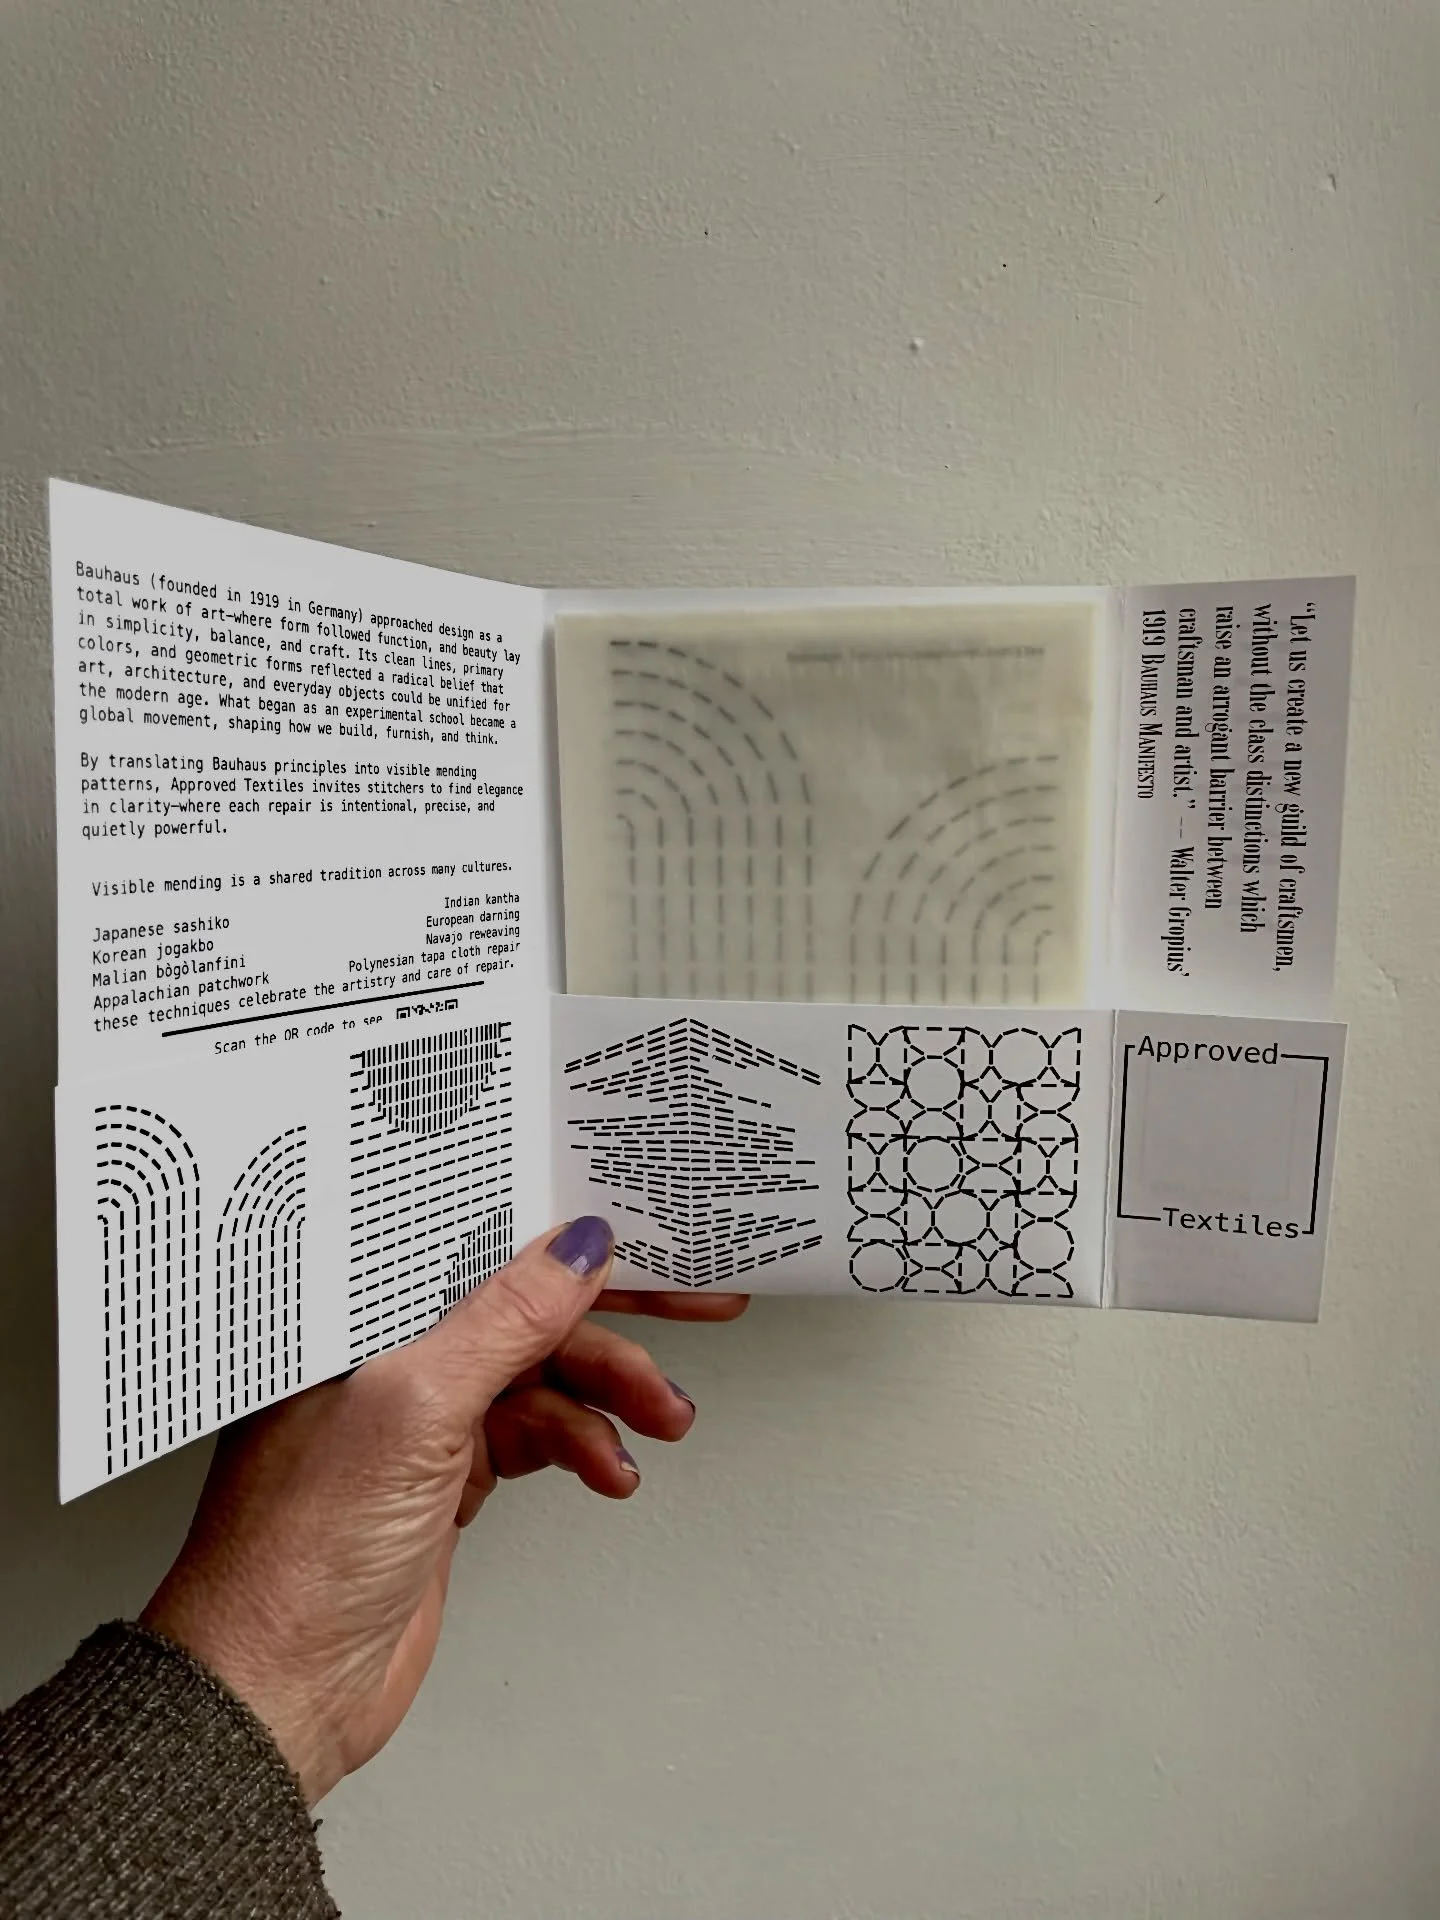 Bauhaus (founded in 1919 in Germany) approached design as a
total work of art—where form followed function, and beauty lay
in simplicity, balance, and craft. Its clean lines, primary
colors, and geometric forms reflected a radical belief that
art, architecture, and everyday objects could be unified for
the modern age. What began as an experimental school became a
global movement, shaping how we build, furnish, and think.
By translating Bauhaus principles into visible mending
patterns, Approved Textiles invites stitchers to find elegance
in clarity—where each repair is intentional, precise, and
quietly powerful.
Visible mending is a shared tradition across many cultures.
Japanese sashiko
Korean jogakbo
Malian bògòlanfini
Appalachian patchwork
Indian kantha
European darning
Navajo reweaving
Polynesian tapa cloth repair
these techniques celebrate the artistry and care of repair.
Scan the QR code to see
“Let us create a new guild of craftsmen,
without the class distinctions which
raise an arrogant barrier between
craftsman and artist.” -- Walter Gropius'
1919 Bauhaus Manifesto
Approved
Textiles